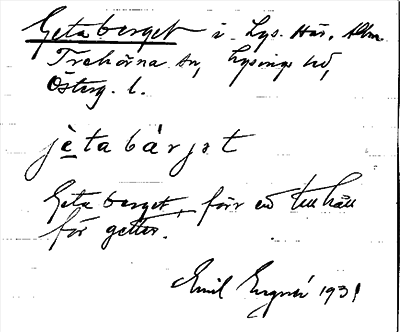 Getaberget i Lys. Här. Alm.
Trehörna sn, Lysings hd,
Österg. l.
jètabàrjət
Getaberget, förr ett tillhåll
för getter.
Emil 1931